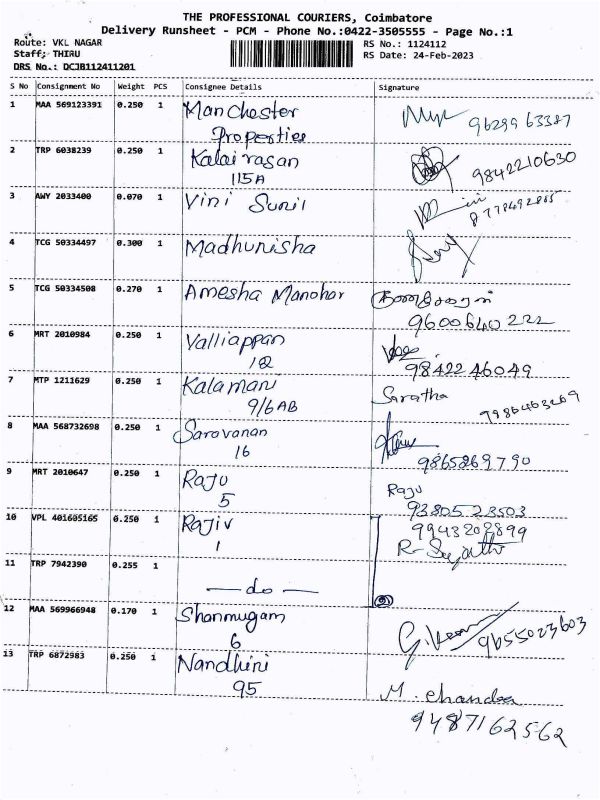 THE PROFESSIONAL COURIERS, Coimbatore
Delivery Runsheet - PCM - Phone No.:0422-3505555 - Page No.:1
Route: VKL NAGAR
RS No.: 1124112
Staff: THIRU
RS Date: 24-Feb-2023
DRS No.: DCJB112411201
S No Consignment No Weight PCS Consignee Details Signature
1 MAA 569123391 0.250 1 Manchester
Properties
9629963387
2 TRP 6038239 0.250 1 Kalairasan
115A
9842210630
3 AWY 2033400 0.070 1 Vini Sunil
4 TCG 50334497 0.300 1 Madhunisha
5 TCG 50334508 0.270 1 Amesha Manohar
9600640222
6 MRT 2010984 0.250 1 Valliappan
9842246049
7 MTP 1211629 0.250 1 Kalamani Saratha
9/6AB
8 MAA 568732698 0.250 1 Saravanan
16
9865269790
9 MRT 2010647 0.250 1 Raju Raju
5 9380523503
10 VPL 401605165 0.250 1 Rajiv 9943202899
1
11 TRP 7942390 0.255 1
— do —
12 MAA 569966948 0.170 1 Shanmugam
6 9655023603
13 TRP 6872983 0.250 1 Nandhini
95 M. Chandra
9487162562